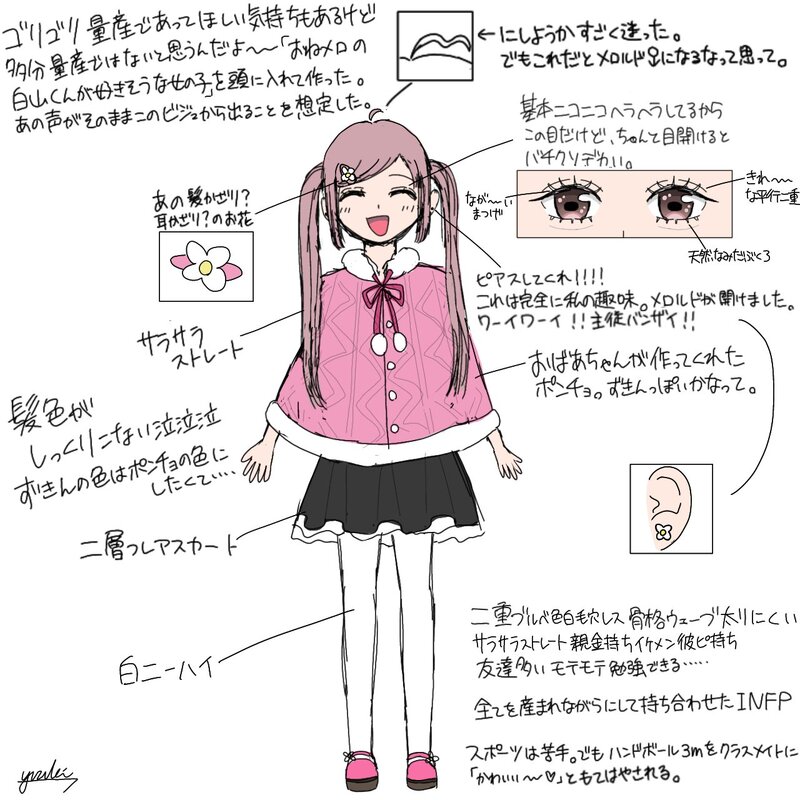 ゴリゴリ量産であってほしい気持ちもあるけど
多分量産ではないと思うんだよ〜〜「おねメロの
白山くんが好きそうな女の子」を頭に入れて作った。
あの声がそのままこのビジュから出ることを想定した。
←にしようかすごく迷った。
でもこれだとメロルド♀になるなって思って。
基本ニコニコヘラヘラしてるから
この目だけど、ちゃんと目開けると
バチクソデカい。
なが〜〜い
まつげ
きれ〜〜
な平行二重
天然なみだぶくろ
あの髪かざり?
耳かざり?のお花
ピアスしてくれ!!!!
これは完全に私の趣味。メロルドが開けました。
ワーイワーイ!!主徒バンザイ!!
サラサラ
ストレート
おばあちゃんが作ってくれた
ポンチョ。ずきんっぽいかなって。
髪色が
しっくりこない泣泣泣
ずきんの色はポンチョの色に
したくて‥‥
二層フレアスカート
白ニーハイ
二重ブルベ色白毛穴レス骨格ウェーブ太りにくい
サラサラストレート親金持ちイケメン彼ピ持ち
友達多いモテモテ勉強できる‥‥‥
全てを産まれながらにして持ち合わせたINFP
スポーツは苦手。でもハンドボール3mをクラスメイトに
「かわいい〜♡」ともてはやされる。